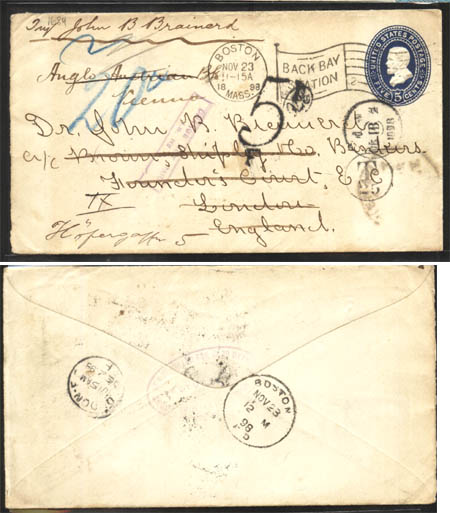 1684
Try John B Brainerd
BOSTON
NOV 23
11-15A
18 98
MASS.
BACK BAY
STATION
UNITED STATES POSTAGE
FIVE 5 CENTS
Anglo Austrian
Vienna
5
Dr. John B. Brainerd
c/o Brown, Shipley & Co. Bankers
Founder's Court, E.C.
IX London
Höfergasse 5 England.
1898
T
BOSTON
NOV 23
12 M
98